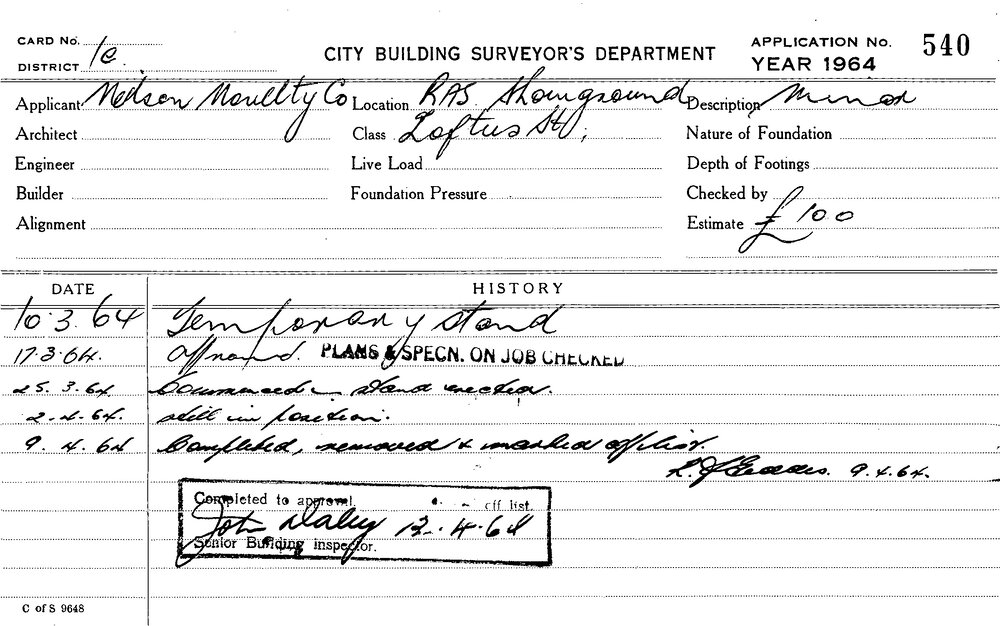 CARD No. 1c
DISTRICT
CITY BUILDING SURVEYOR'S DEPARTMENT
APPLICATION No. 540
YEAR 1964
Applicant Nelson Novelty Co Location RAS Showground Description Minor
Architect Class Loftus St; Nature of Foundation
Engineer Live Load Depth of Footings
Builder Foundation Pressure Checked by
Alignment Estimate £100
DATE HISTORY
10.3.64 Temporary stand
17.3.64. Approved. PLANS & SPECN. ON JOB CHECKED
25.3.64 Commenced - stand erected.
2.4.64 still in position.
9.4.64 Completed, removed & marked off list.
9.4.64.
Completed to approval. off list.
John Daley 13.4.64
Senior Building inspector.
C of S 9648